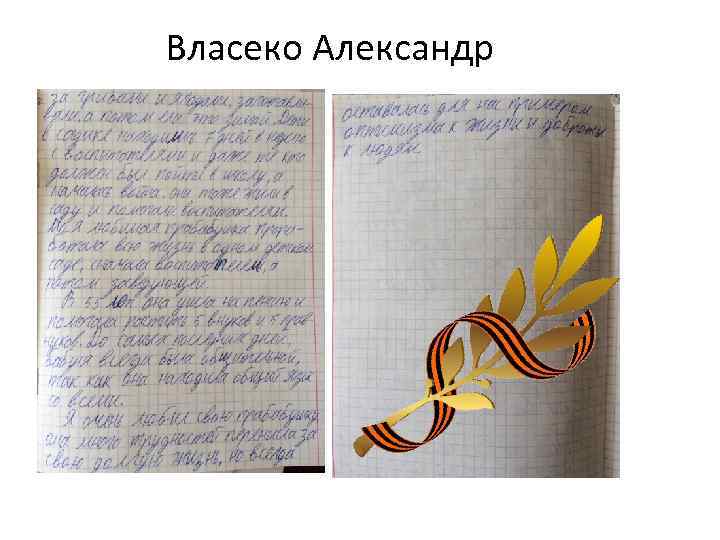 Власеко Александр
за грибами и ягодами, заготавли-
вали, а потом ели это зимой. Дети
в садике находились 7 дней в неделю
с воспитателем и даже те кто
должен был пойти в школу, а
началась война. они тоже жили в
саду и помогали воспитателям.
Моя любимая прабабушка прора-
ботала всю жизнь в одном детском
саде, сначала воспитателем, а
потом заведующей.
В 55 лет она ушла на пенсию и
помогала растить 5 внуков и 5 прав-
нуков. До самых последних дней
бабуля всегда была общительной,
так как она находила общий язык
со всеми.
Я очень любил свою прабабушку
она много трудностей перенесла за
свою долгую жизнь, но всегда
оставалась для нас примером
оптимизма к жизни и доброты
к людям.